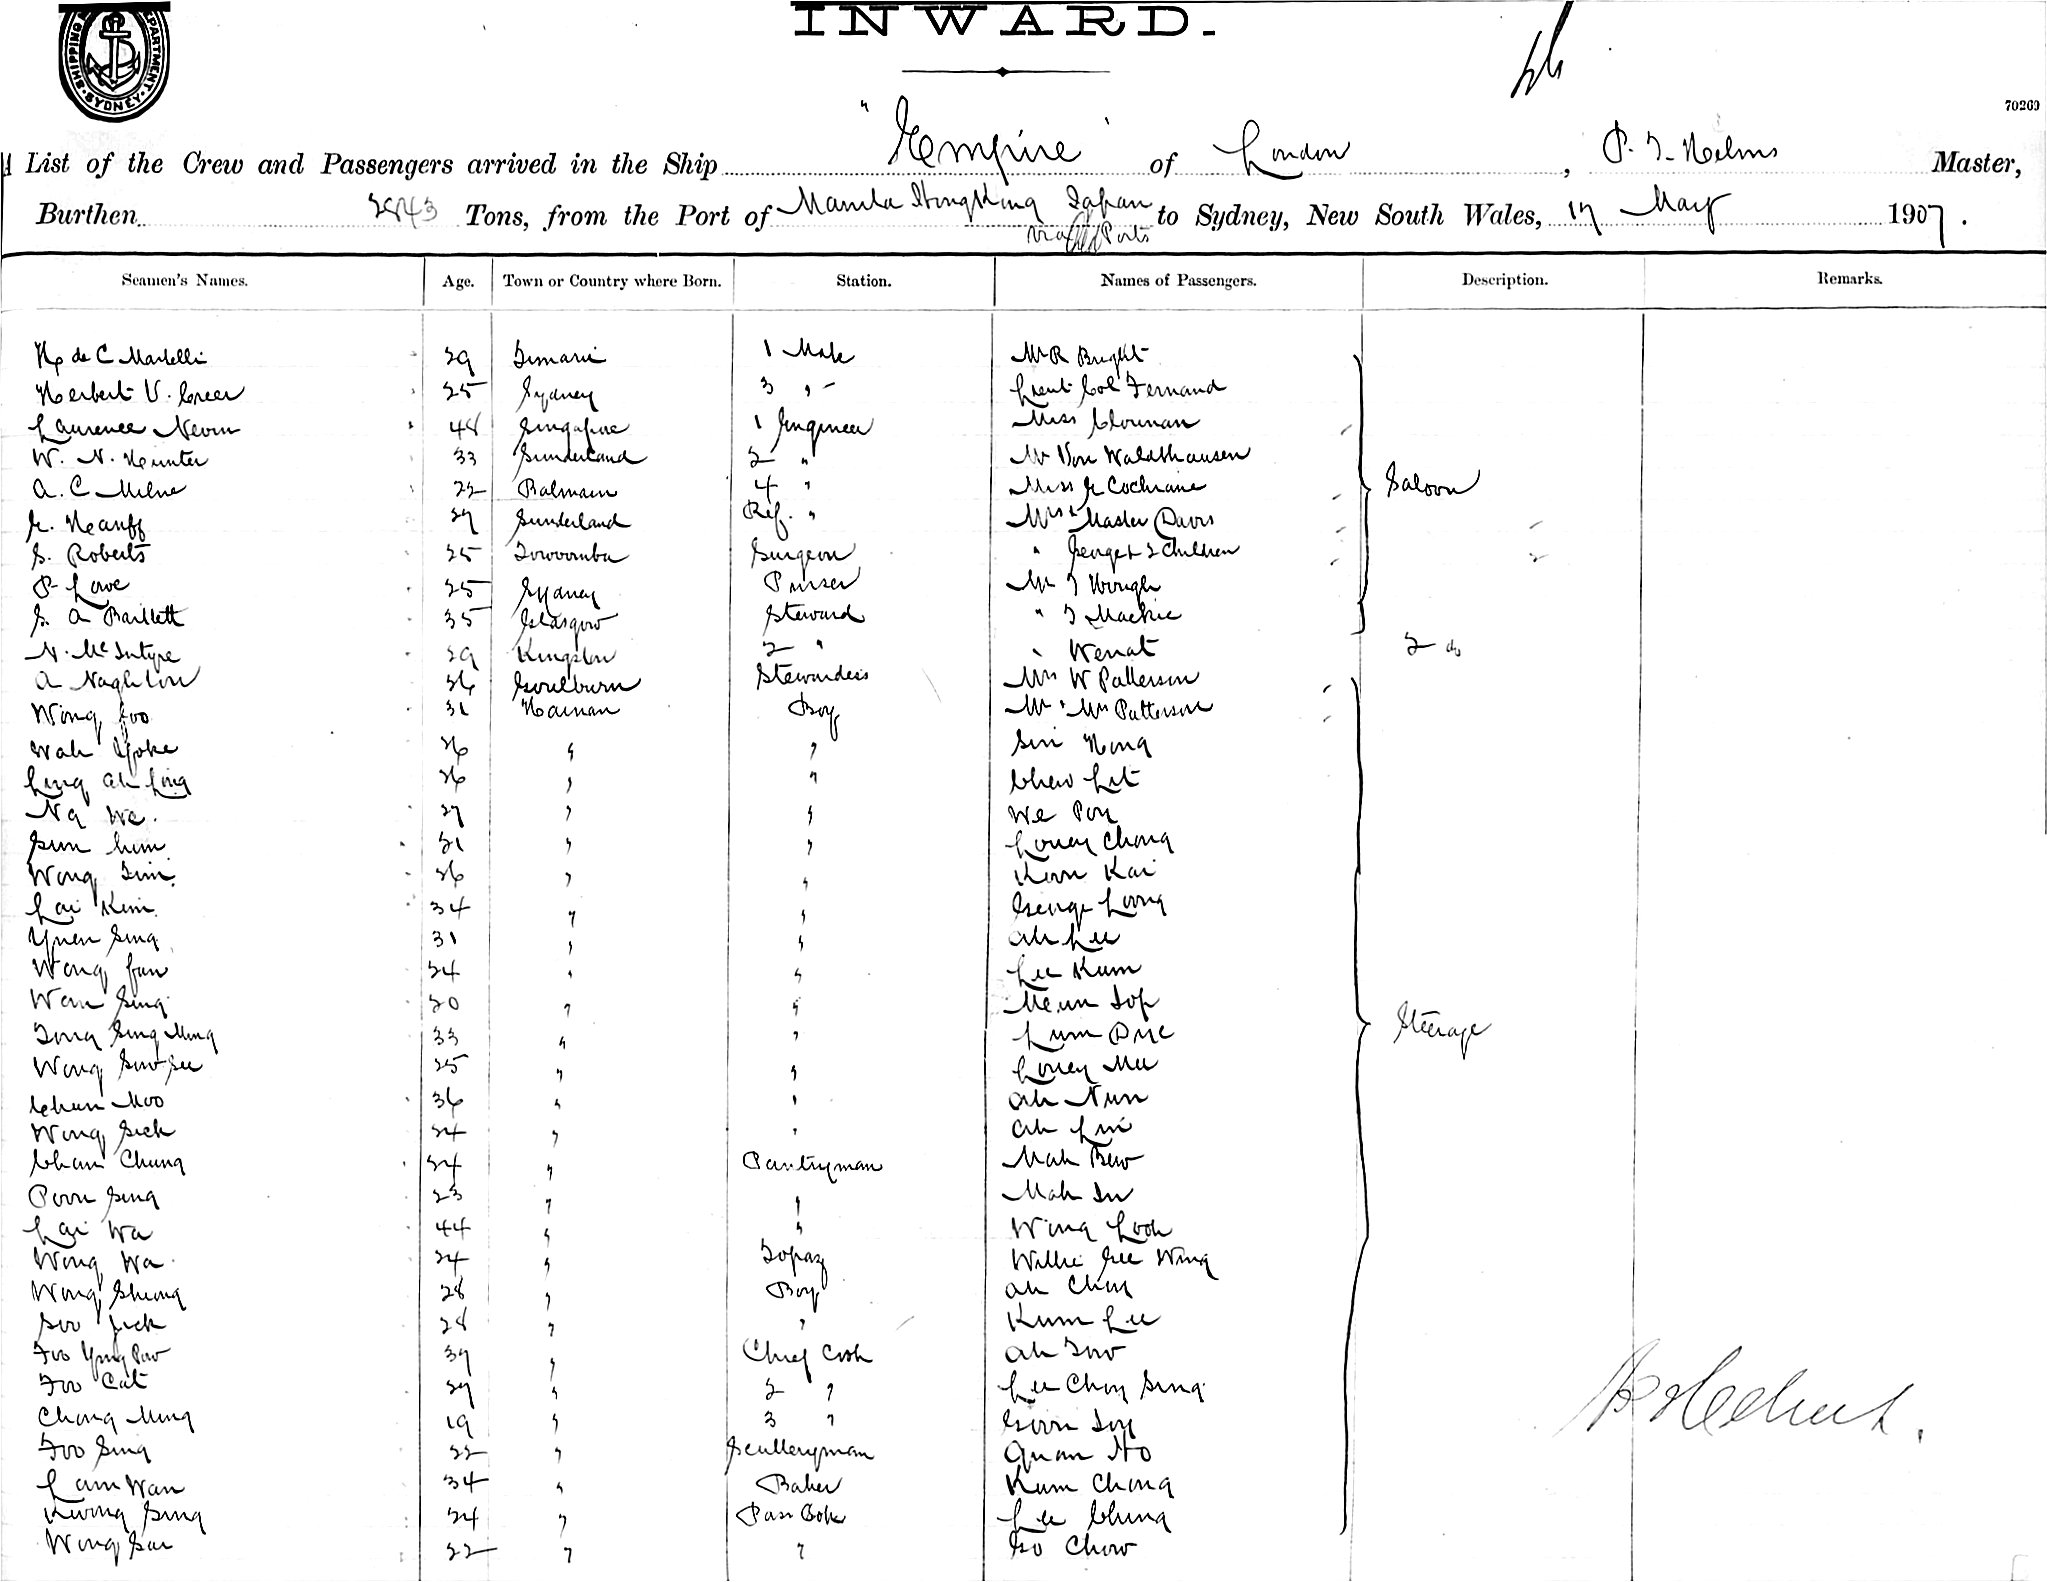 SHIPPING DEPARTMENT · SYDNEY ·
INWARD.
70260
A List of the Crew and Passengers arrived in the Ship "Empire" of London, P. T. Helms Master,
Burthen 2843 Tons, from the Port of Manila HongKong Japan to Sydney, New South Wales, 17 May 1907.
via Ports
Seamen's Names. Age. Town or Country where Born. Station. Names of Passengers. Description. Remarks.
H de C Martelli 29 Timaru 1 Mate Mr R Bright
Herbert V. Creer 25 Sydney 3 " Lieut Col Fernand
Laurence Nevin 48 Singapore 1 Engineer Miss Clownan
W. N. Hunter 33 Sunderland 2 " Mr Von Waldthausen
A. C Milne 22 Balmain 4 " Miss E Cochrane Saloon
27 Sunderland Ref. " Mrs & Master Davis
S. Roberts 25 Toowoomba Surgeon " George & 2 Children
P Lowe 25 Sydney Purser Mr T Waugh
S. A Bartlett 35 Glasgow Steward " T Mackie
N. McIntyre 29 Kingston 2 " " Wenat 2 do
A Naghton 36 Goulburn Stewardess Mrs W Patterson
Wong Foo 31 Hainan Boy Mr & Mrs Patterson
Wah Yoke 26 " " Sin Hong
Ling Ah Ling 26 " " Chew Lit
Ng We 27 " " We Poy
Sun Him 21 " " Louey Chong
Wong Tim 26 " " Koon Kai
Lai Kim 34 " " George Loong
Yuen Sing 31 " " Ah Lee
Wong Fun 24 " " Lee Kum
Wan Sing 20 " " Meun Sop
Tong Sing Ming 33 " " Lum Dye Steerage
Wong Sow See 25 " " Louey Mee
Chun Moo 36 " " Ah Nun
Wong Sick 24 " " Ah Lin
Cham Chung 24 " Pantryman Mah Bew
Poon Sing 23 " " Mah Su
Lai Wa 44 " " Wing Look
Wong Wa 24 " Topaz Willie Gee Wing
Wong Sheong 28 " Boy Ah Choy
Soo Sick 28 " " Kum Lee
Foo Yong Pow 39 " Chief Cook Ah Tow
Foo Cat 27 " 2 " Lee Choy Sing
Chong Ming 19 " 3 " Goon Soy
Foo Sing 22 " Sculleryman Quan Ho
Lam Wan 34 " Baker Kum Chong
Kwong Sing 24 " Pass Cook Lee Chung
Wong Sai 22 " " Go Chow